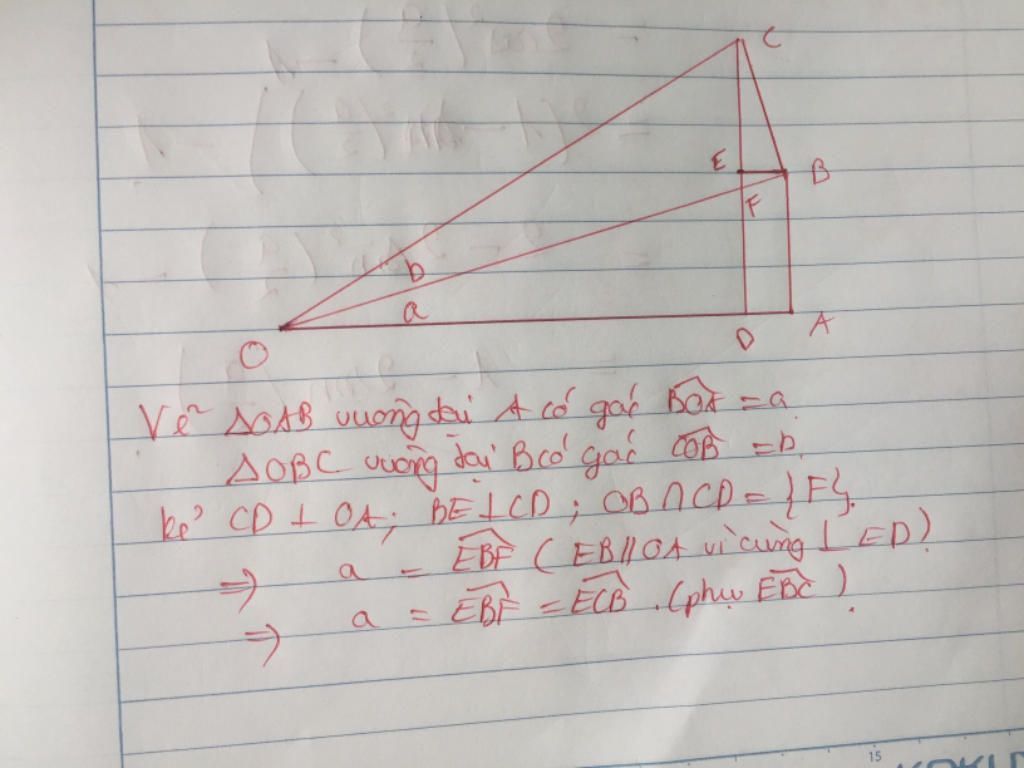 C
E
B
F
b
a
O
D
A
Vẽ ΔOAB vuông tại A có góc BOA = a.
ΔOBC vuông tại B có góc COB = b.
kẻ CD ⊥ OA; BE ⊥ CD; OB ∩ CD = {F}.
⇒ a = EBF (EB // OA vì cùng ⊥ ED)
⇒ a = EBF = ECB. (phụ EBC).
15